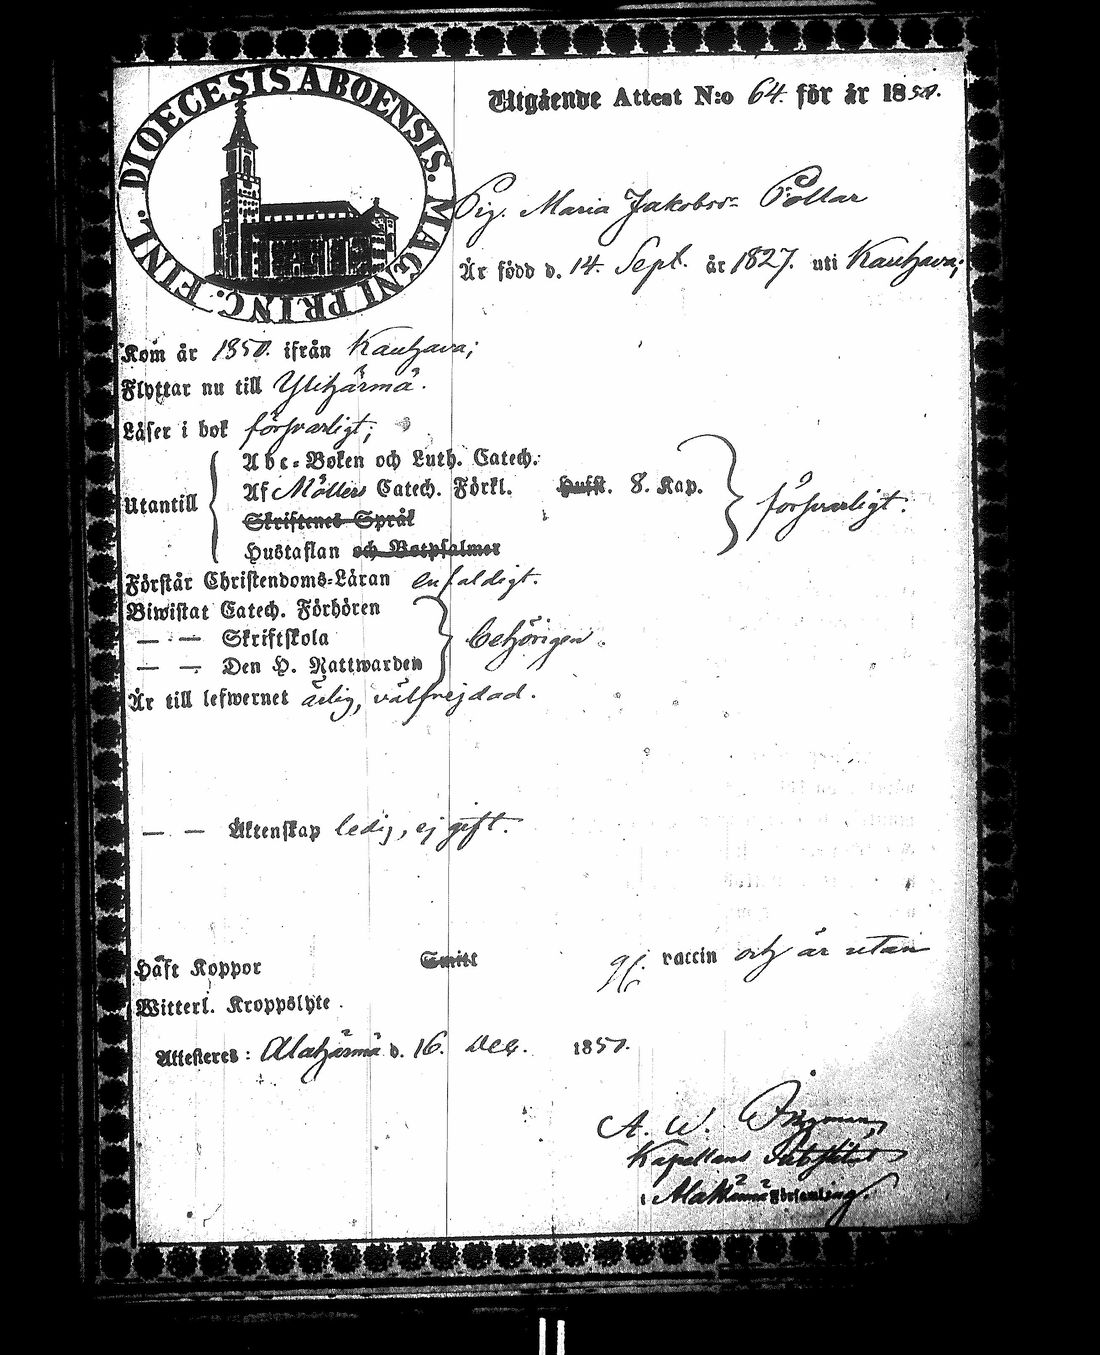 DIOECESIS ABOENSIS. MAGNI PRINC. FINL.
Utgående Attest N:o 64. för år 1850.
Pig. Maria Jakobsd:r Pollar
Är född d. 14. Sept. år 1827. uti Kauhava;
Kom år 1850. ifrån Kauhava;
Flyttar nu till Ylihärmä.
Läser i bok försvarligt;
Utantill
Abc-Boken och Luth. Catech.
Af Möllers Catech. Förkl. Hufst. 8. Kap. försvarligt.
Skriftenes Språk
Hustaflan och Botpsalmer
Förstår Christendoms-Läran enfaldigt.
Biwistat Catech. Förhören
— — Skriftskola behörigen.
— — Den H. Nattwarden
Är till lefwernet ärlig, välfrejdad.
— — Äktenskap ledig, ej gift.
Haft Koppor Smitt vaccin och är utan
Witterl. Kroppslyte.
Attesteres: Alahärmä d. 16. Dec. 1850.
A. W.
Kapellans Substitut
i Alahärmä Församling.